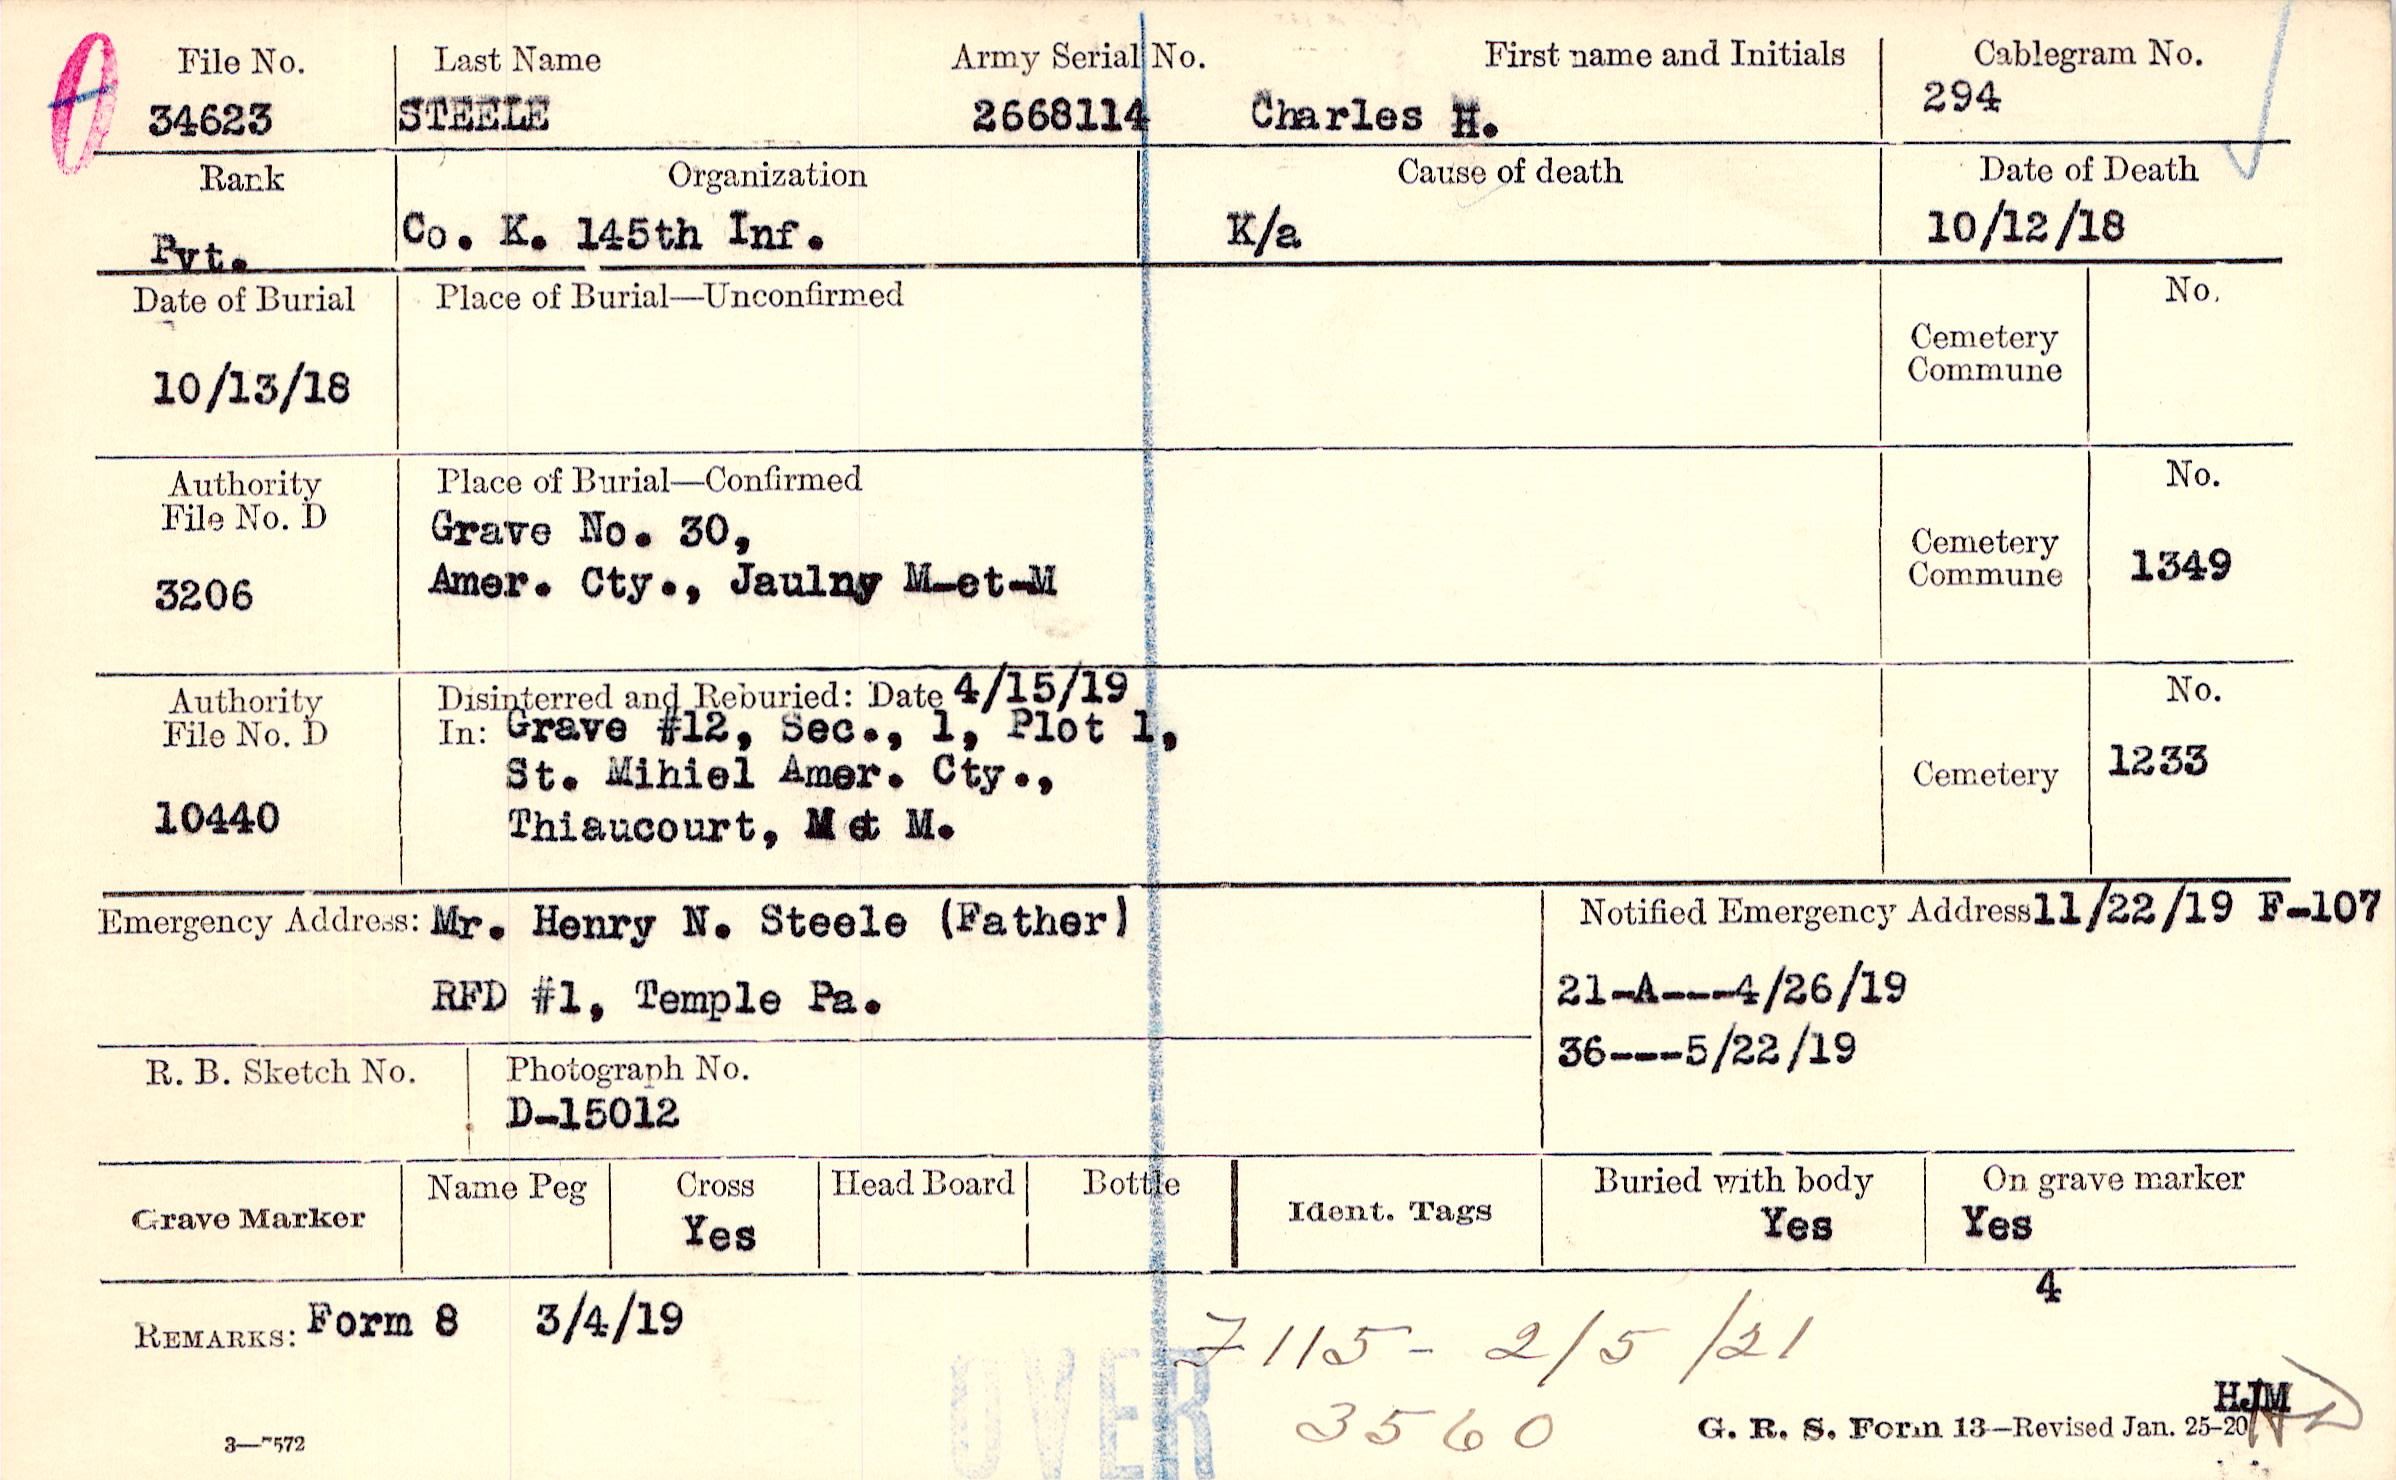 File No. Last Name Army Serial No. First name and Initials Cablegram No.
34623 STEELE 2668114 Charles H. 294
Rank Organization Cause of death Date of Death
Pvt. Co. K. 145th Inf. K/a 10/12/18
Date of Burial Place of Burial—Unconfirmed No.
Cemetery
Commune
10/13/18
Authority Place of Burial—Confirmed No.
File No. D Grave No. 30, Cemetery
3206 Amer. Cty., Jaulny M-et-M Commune 1349
Authority Disinterred and Reburied: Date 4/15/19 No.
File No. D In: Grave #12, Sec., 1, Plot 1,
St. Mihiel Amer. Cty., Cemetery 1233
10440 Thiaucourt, M et M.
Emergency Address: Mr. Henry N. Steele (Father) Notified Emergency Address 11/22/19 F-107
RFD #1, Temple Pa. 21-A---4/26/19
36---5/22/19
R. B. Sketch No. Photograph No.
D-15012
Grave Marker Name Peg Cross Head Board Bottle Ident. Tags Buried with body On grave marker
Yes Yes Yes
4
REMARKS: Form 8 3/4/19 7115- 2/5/21
OVER 3560
HJM
3—7572 G. R. S. Form 13—Revised Jan. 25-20